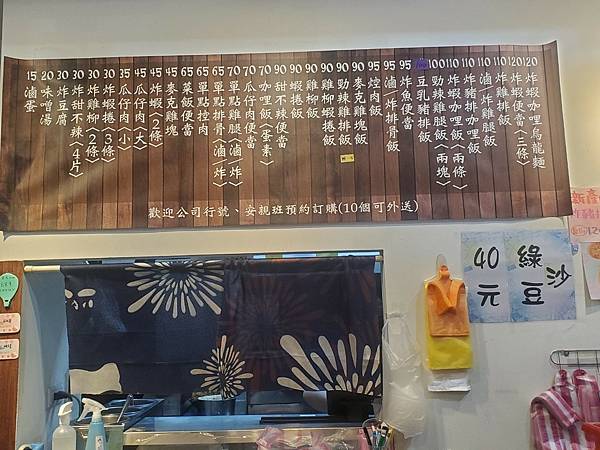 120 炸蝦咖哩烏龍麵
120 炸蝦便當(三條)
110 炸雞排咖哩飯
110 滷/炸雞腿飯
110 炸豬排咖哩飯
110 炸蝦咖哩飯(兩條)
100 勁辣雞腿飯(兩塊)
豆乳豬排飯
95 炸魚便當
95 滷/炸排骨飯
95 焢肉飯
90 麥克雞塊飯
90 勁辣雞排飯
90 雞柳蝦捲飯
90 雞柳飯
90 蝦捲飯
90 甜不辣便當
70 咖哩飯(蛋素)
70 瓜仔肉便當
70 單點雞腿(滷/炸)
65 單點排骨(滷/炸)
65 單點控肉
65 菜飯便當
45 麥克雞塊
45 炸蝦(2條)
45 瓜仔肉(大)
35 瓜仔肉(小)
30 炸蝦捲(3條)
30 炸雞柳(2條)
30 炸甜不辣(4片)
30 炸豆腐
20 味噌湯
15 滷蛋
歡迎公司行號、安親班預約訂購(10個可外送)
綠豆沙
40元